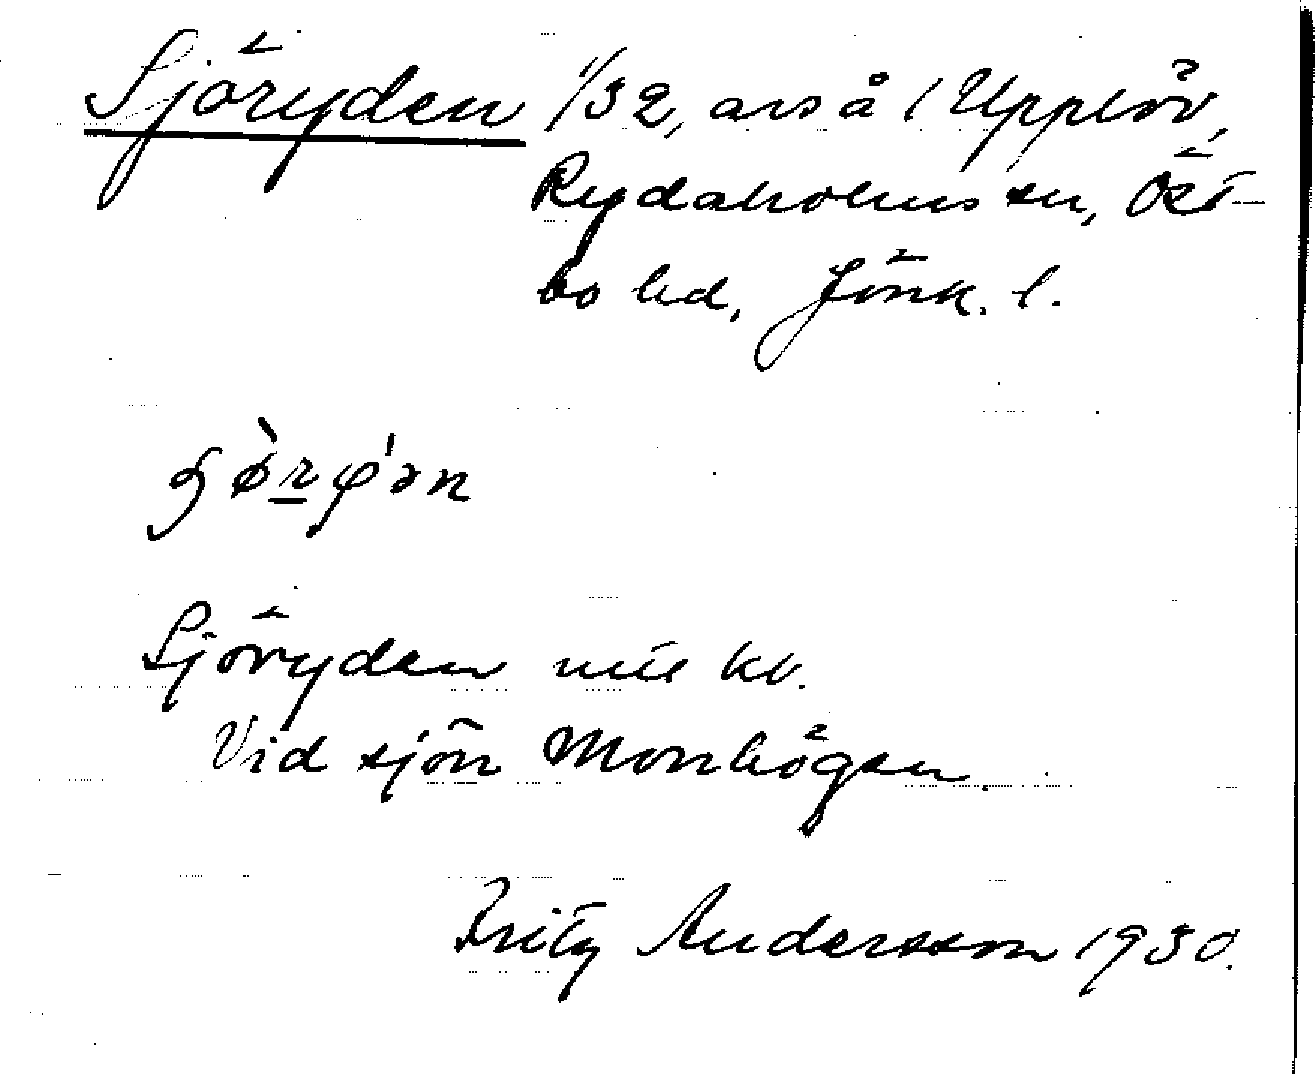 Sjöryden 1/32, avs å 1 Upplöv,
Rydaholms sn, Öst-
bo hd, Jönk. l.
Sjöryden mtl kb.
Vid sjön Monhögen.
Fritz Andersson 1930.